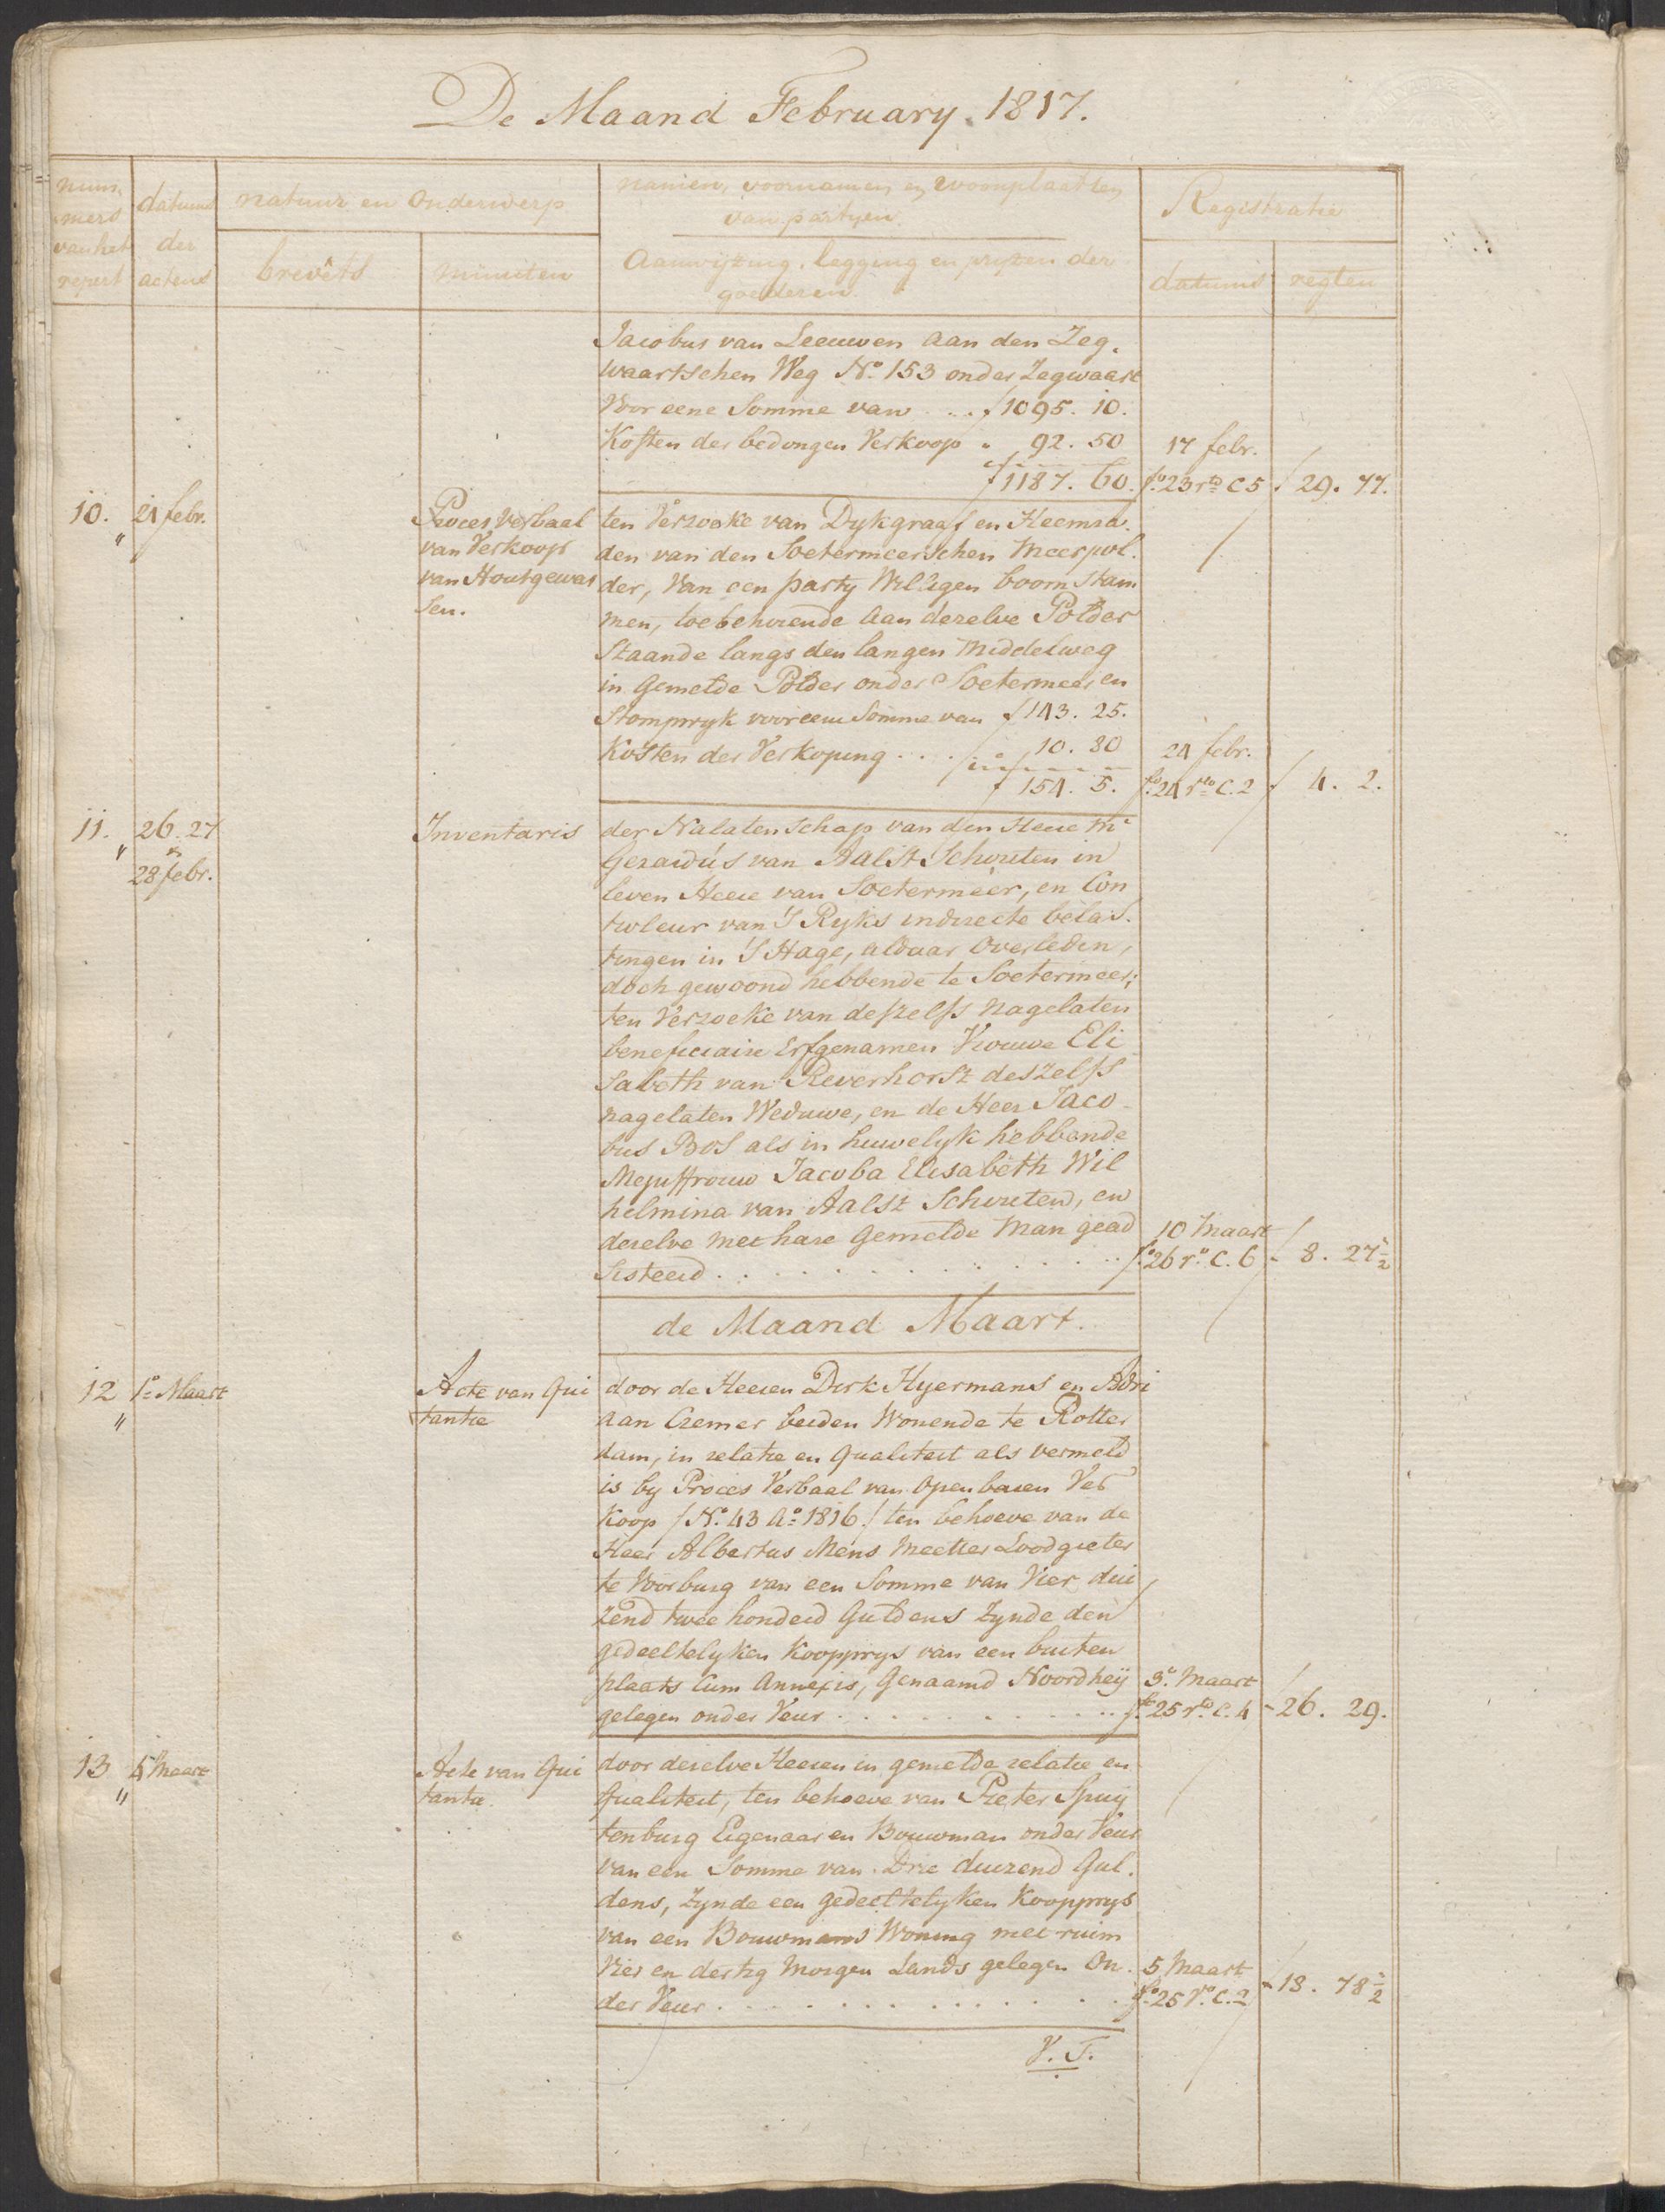 De Maand February. 1817.
num,
mers
van het
repert
datums
der
actens
natuur en Onderwerp
brevêts
minuten
namen, voornamen en woonplaatsen
van partyen.
Aanwijzing, legging en pryzen der
goederen.
Registratie
datums
regten
Jacobus van Leeuwen aan den Zeg.
waartschen Weg No. 153 onder Zegwaart
Voor eene Somme van ... f 1095. 10.
Kosten der bedongen Verkoop " 92. 50
17 febr.
f 1187. 60.
fo. 23 rto C 5
f 29. 77.
10. "
21 febr.
Proces Verbaal
van Verkoop
van Houtgewas
sen.
ten Verzoeke van Dykgraaf en Heemra.
den van den Soetermeerschen Meerpol.
der, Van een party Willigen boom Stam
men, toebehorende aan dezelve Polder
Staande langs den langen Middelweg
in Gemelde Polder onder Soetermeer en
Stompwyk voor eene Somme van f 143. 25.
Kosten der Verkoping .... " 10. 80
24 febr.
f 154. 5.
fo. 24 rto C. 2
f 4. 2.
11. "
26. 27
en
28 febr.
Inventaris
der Nalatenschap van den Heere Mr
Gerardus van Aalst Schouten in
leven Heere van Soetermeer, en Con
troleur van 'S Ryks indirecte belas.
tingen in 'S Hage, aldaar Overleden,
doch gewoond hebbende te Soetermeer;
ten Verzoeke van deszelfs nagelaten
beneficiaire Erfgenamen Vrouwe Eli
Sabeth van Reverhorst deszelfs
nagelaten Weduwe, en de Heer Jaco
bus Bos als in huwelyk hebbende
Mejuffrouw Jacoba Elisabeth Wil
helmina van Aalst Schouten, en
dezelve met hare Gemelde Man gead
Sisteerd . . . . . . . .
10 Maart
fo. 26 ro. C. 6
- 8. 27 1/2
de Maand Maart.
12 "
1o Maart
Acte van Qui
tantie
door de Heeren Dirk Hyermans en Adri
aan Cremer beiden Wonende te Rotter
dam, in relatie en Qualiteit als vermeld
is by Proces Verbaal van Openbaren Ver
Koop / No. 43 Ao. 1816 / ten behoeve van de
Heer Albertus Mens Meester Loodgieter
te Voorburg van een Somme van Vier dui
zend twee honderd Guldens Zynde den
gedeeltelyken Koopprys van een buiten
plaats Cum Annexis, Genaamd Noordheij
gelegen onder Veur . . . . . . . .
3e. Maart
fo. 25 rto. C. 4
- 26. 29.
13 "
4 Maart
Acte van Qui
tantie.
door dezelve Heeren in gemelde relatie en
Qualiteit, ten behoeve van Pieter Spuij
tenburg Eigenaar en Bouwman onder Veur
van een Somme van Drie duizend Gul.
dens, Zynde een gedeeltelyken Koopprys
van een Bouwmans Woning met ruim
Vier en dertig Morgen Lands gelegen On.
der Veur . . . . . . . .
5 Maart
fo. 25 Vo. C. 2
- 18. 78 1/2
V. T.